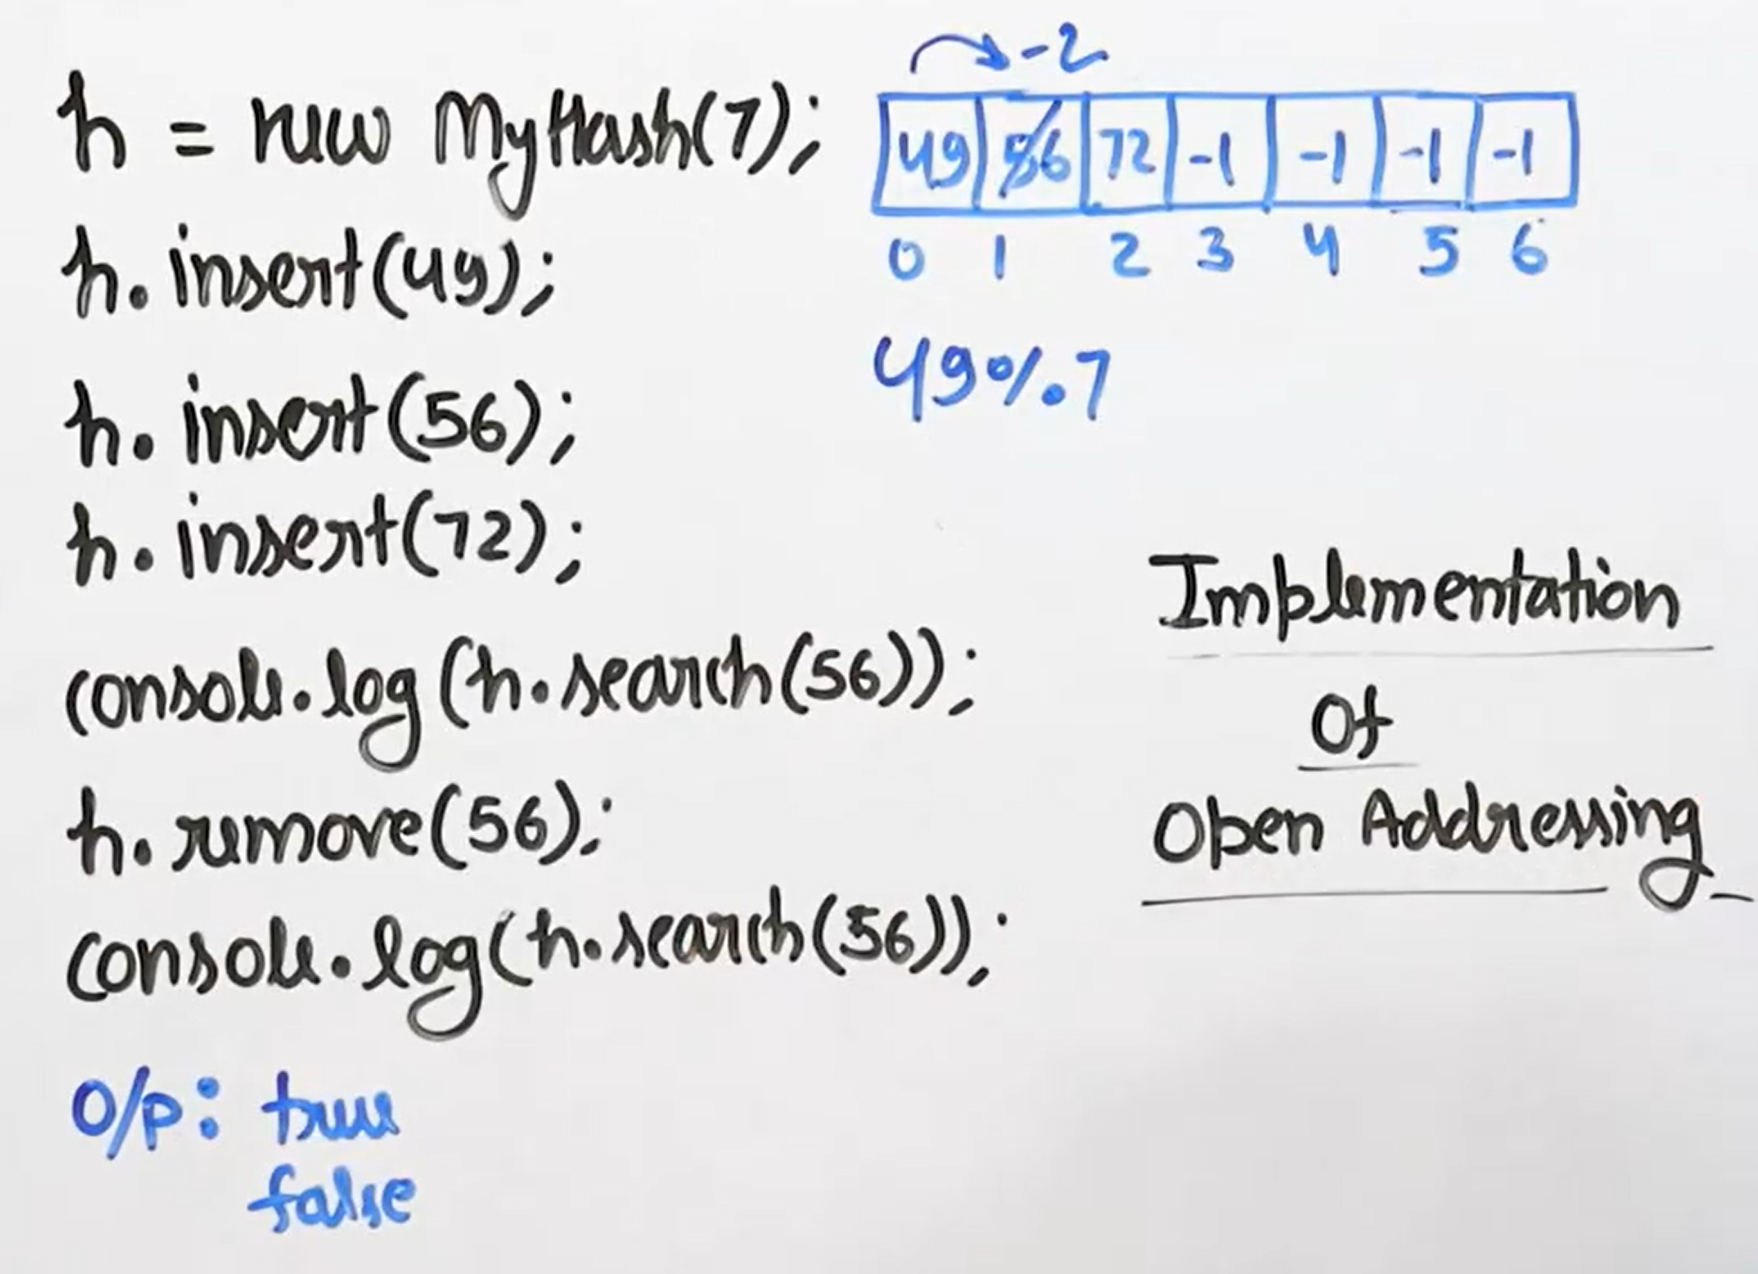 h = new MyHash(7);
h. insert(49);
h. insert(56);
h. insert(72);
console.log(h.search(56));
h. remove(56);
console.log(h.search(56));
O/P: true
false
-2
49 56 72 -1 -1 -1 -1
0 1 2 3 4 5 6
49%7
Implementation
Of
Open Addressing